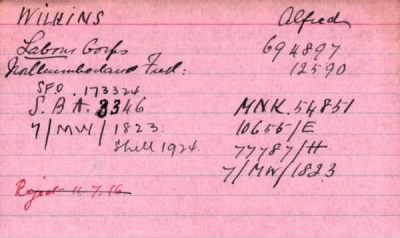 WILKINS Alfred
Labour Corps 694897
Northumberland Fus: 12590
SFO. 173324
S.B.A. 3346 MNK. 54851
7/MW/1823. 10655/E
Shell 1924. 77787/H
7/MW/1823
11.7.16